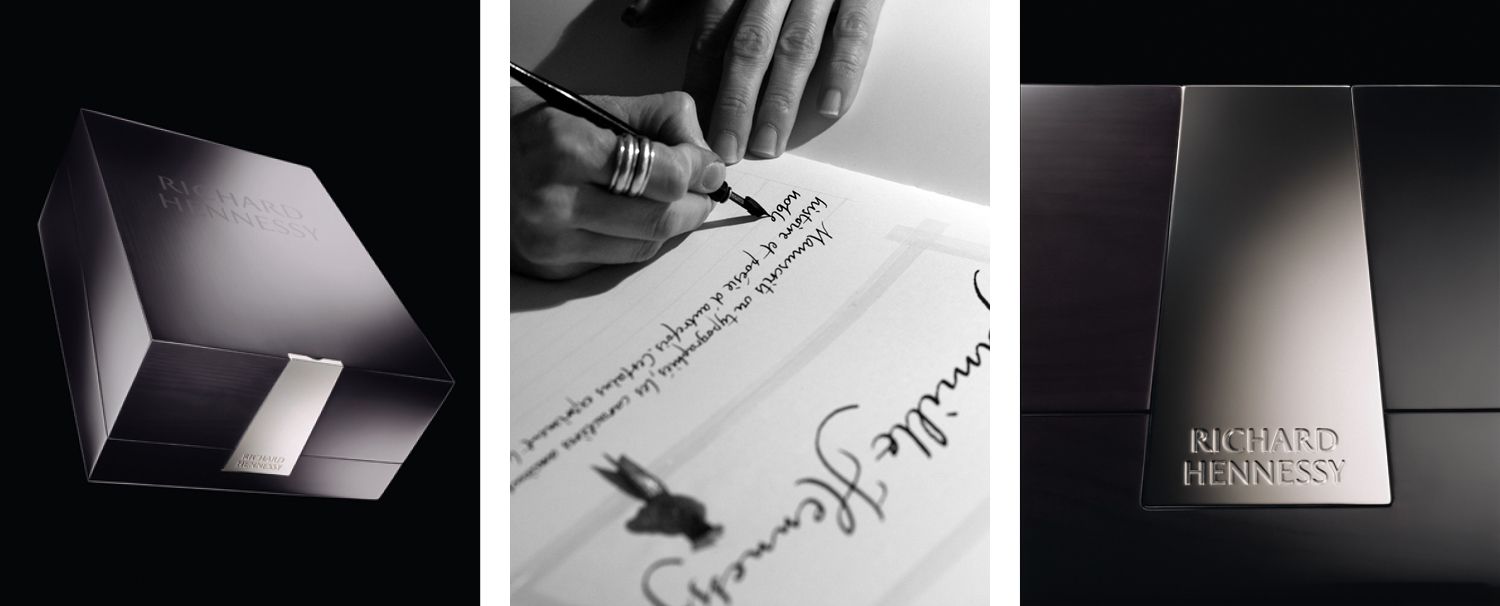 RICHARD
HENNESSY
RICHARD
HENNESSY
Manuscrits ou typographiés, les caractères
histoire et poésie d'autrefois. Certains expriment
noble
Famille Hennessy
RICHARD
HENNESSY